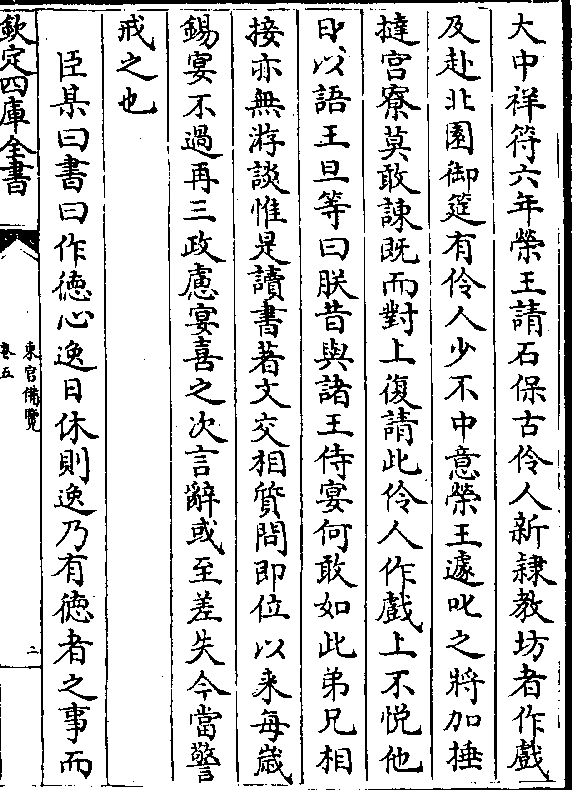 大中祥符六年榮王請石保吉伶人新隸教坊者作戲
及赴北園御筵有伶人少不中意榮王遽叱之將加捶
撻宫寮莫敢諫既而對上復請此伶人作戲上不悦他
日以語王旦等曰朕昔與諸王侍宴何敢如此弟兄相
接亦無游談惟是讀書著文交相質問即位以来每嵗
錫宴不過再三政慮宴喜之次言辭或至差失今當警
戒之也
臣某曰書曰作徳心逸日休則逸乃有徳者之事而
欽定四庫全書
東宫備覽
卷五
二